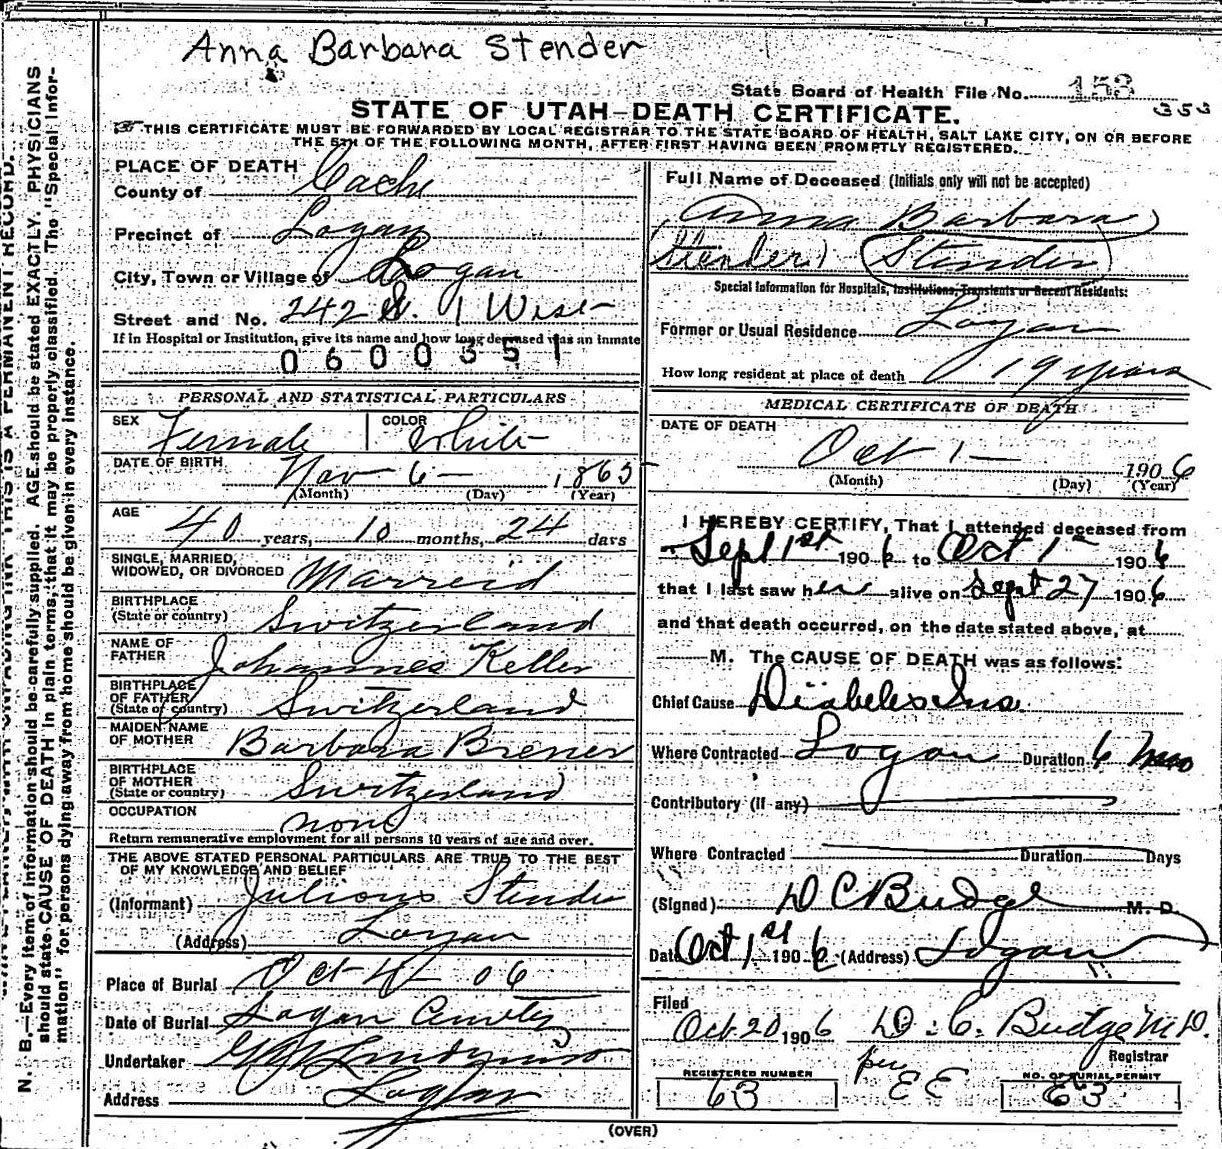 Anna Barbara Stender
State Board of Health File No. 153
353
STATE OF UTAH—DEATH CERTIFICATE.
THIS CERTIFICATE MUST BE FORWARDED BY LOCAL REGISTRAR TO THE STATE BOARD OF HEALTH, SALT LAKE CITY, ON OR BEFORE
THE 5TH OF THE FOLLOWING MONTH, AFTER FIRST HAVING BEEN PROMPTLY REGISTERED.
N. B.—Every item of information should be carefully supplied. AGE should be stated EXACTLY. PHYSICIANS
should state CAUSE OF DEATH in plain terms, that it may be properly classified. The "Special Infor-
mation" for persons dying away from home should be given in every instance.
PLACE OF DEATH
County of Cache
Precinct of Logan
City, Town or Village of Logan
Street and No. 242 S. 1 West
If in Hospital or Institution, give its name and how long deceased was an inmate
0600351
PERSONAL AND STATISTICAL PARTICULARS
SEX Female COLOR White
DATE OF BIRTH Nov 6 1865
(Month) (Day) (Year)
AGE 40 years, 10 months, 24 days
SINGLE, MARRIED,
WIDOWED, OR DIVORCED Marreid
BIRTHPLACE
(State or country) Switzerland
NAME OF
FATHER Johannes Keller
BIRTHPLACE
OF FATHER
(State or country) Switzerland
MAIDEN NAME
OF MOTHER Barbara Brener
BIRTHPLACE
OF MOTHER
(State or country) Switzerland
OCCUPATION none
Return remunerative employment for all persons 10 years of age and over.
THE ABOVE STATED PERSONAL PARTICULARS ARE TRUE TO THE BEST
OF MY KNOWLEDGE AND BELIEF
(Informant) Julious Stender
(Address) Logan
Place of Burial Oct 4 06
Date of Burial Logan
Undertaker
Address Logan
Full Name of Deceased (Initials only will not be accepted)
Anna Barbara
(Stender) (Stender)
Special Information for Hospitals, Institutions, Transients or Recent Residents:
Former or Usual Residence Logan
How long resident at place of death 19 years
MEDICAL CERTIFICATE OF DEATH
DATE OF DEATH
Oct 1 — 1906
(Month) (Day) (Year)
I HEREBY CERTIFY, That I attended deceased from
Sept 1st 1906 to Oct 1 1906
that I last saw her alive on Sept 27 1906
and that death occurred, on the date stated above, at
M. The CAUSE OF DEATH was as follows:
Chief Cause Diabetes Ins.
Where Contracted Logan Duration 6
Contributory (if any)
Where Contracted Duration Days
(Signed) D C Budge M. D.
Date Oct 1st 1906 (Address) Logan
Filed
Oct. 20 1906 D. C. Budge M.D.
Registrar
per EE
REGISTERED NUMBER
63
NO. OF BURIAL PERMIT
63
(OVER)